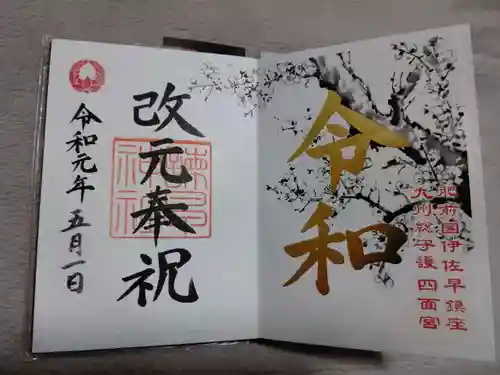 肥前国伊佐早鎮座
九州総守護 四面宮
令和
改元奉祝
諫早
神社
令和元年 五月一日